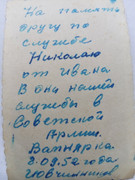 На память
другу по
службе
Николаю
от Ивана
В дни нашей
службы в
Советской
Армии.
Вапнярка.
8.09.52 года